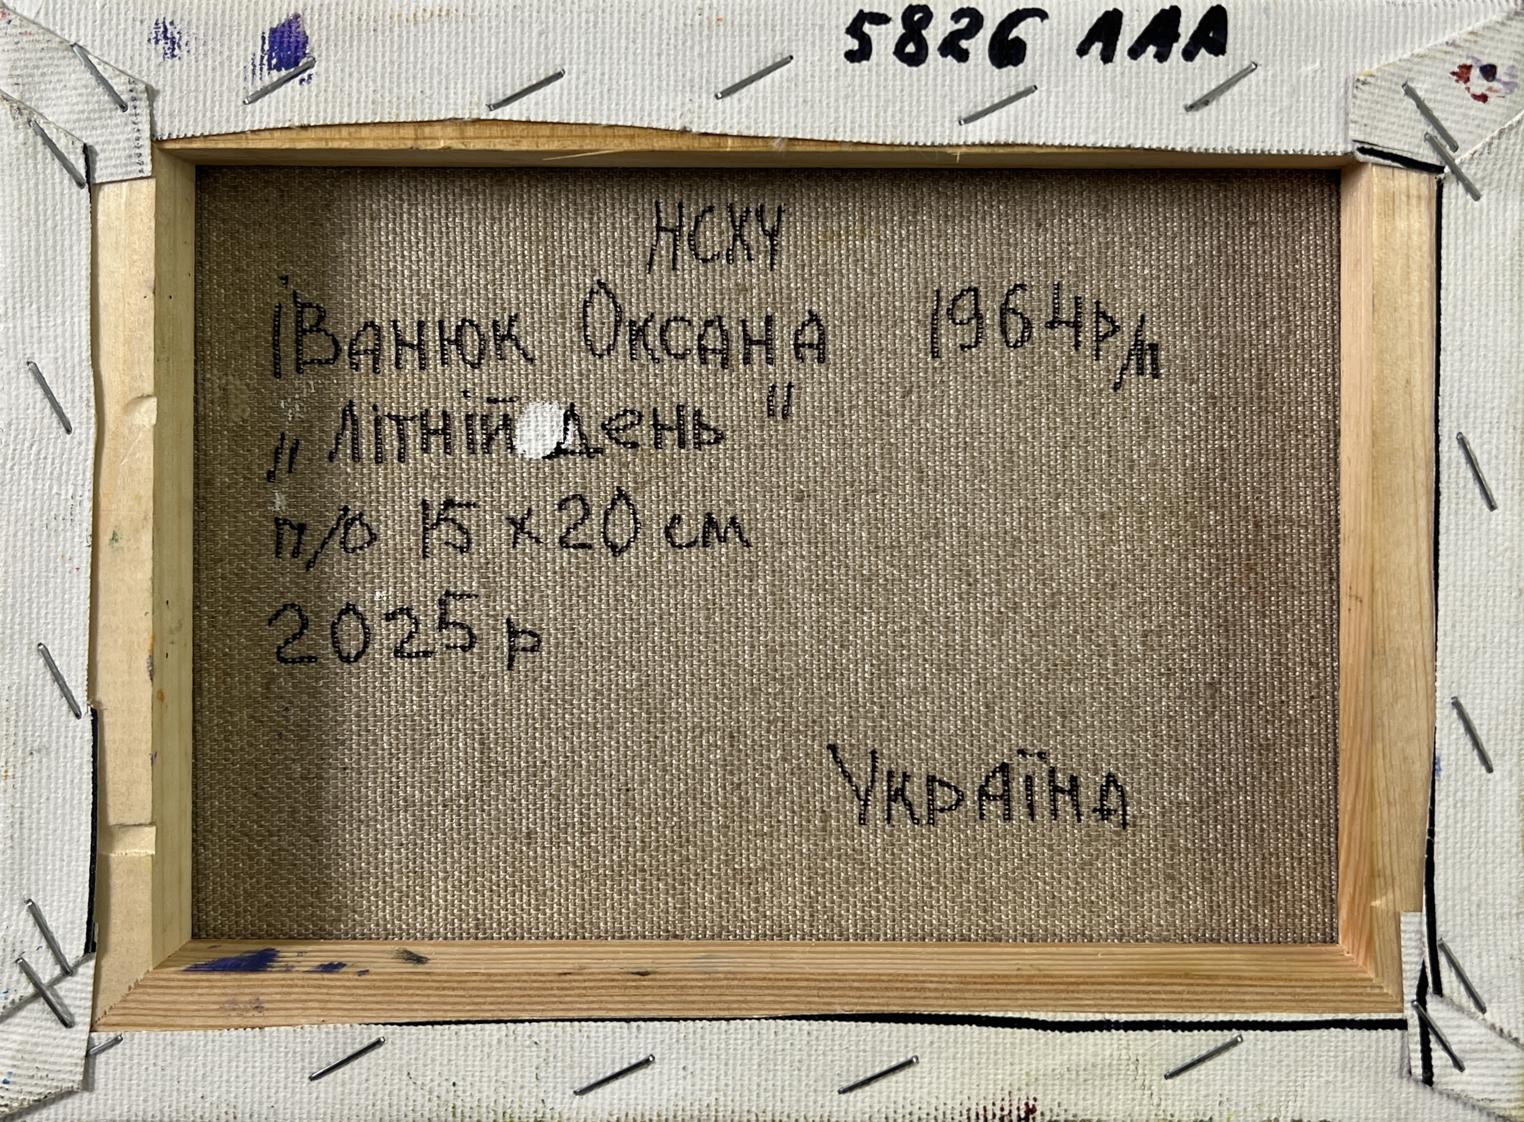 5826 ААА
НСХУ
Іванюк Оксана 1964р/н
„Літній день"
п/о 15 х 20 см
2025 р
Україна